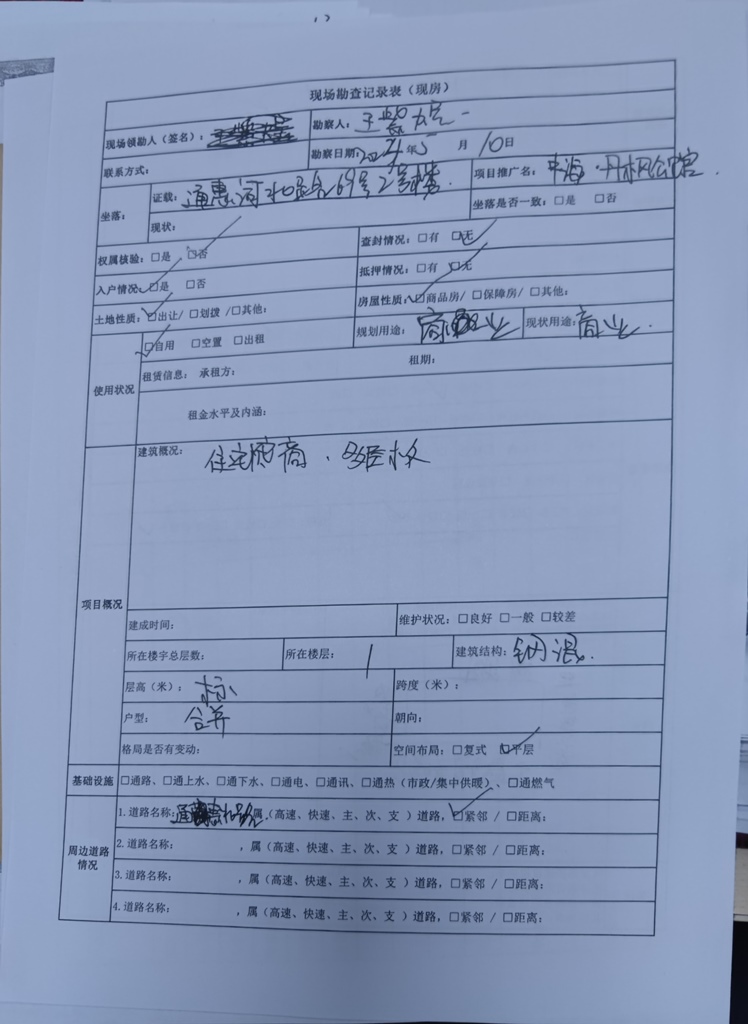 现场勘查记录表（现房）
现场领勘人（签名）： 勘察人：王
联系方式： 勘察日期：2021年5月10日
坐落： 证载：通惠河 69号2号楼 项目推广名：中海·丹枫公馆
现状： 坐落是否一致：□是 □否
权属核验：□是 □否 查封情况：□有 □无
入户情况：□是 □否 抵押情况：□有 □无
土地性质：□出让/ □划拨 /□其他： 房屋性质：□商品房/ □保障房/ □其他：
使用状况 □自用 □空置 □出租 规划用途：商业 现状用途：商业.
租赁信息： 承租方： 租期：
租金水平及内涵：
项目概况 建筑概况：住宅底商、多层板
建成时间： 维护状况：□良好 □一般 □较差
所在楼宇总层数： 所在楼层：1 建筑结构：钢混.
层高（米）：标 跨度（米）：
户型：合并 朝向：
格局是否有变动： 空间布局：□复式 □平层
基础设施 □通路、□通上水、□通下水、□通电、□通讯、□通热（市政/集中供暖）、□通燃气
周边道路情况 1.道路名称：通 ,属（高速、快速、主、次、支 ）道路，□紧邻 / □距离：
2.道路名称： ，属（高速、快速、主、次、支 ）道路，□紧邻 / □距离：
3.道路名称： ，属（高速、快速、主、次、支 ）道路，□紧邻 / □距离：
4.道路名称： ，属（高速、快速、主、次、支 ）道路，□紧邻 / □距离：